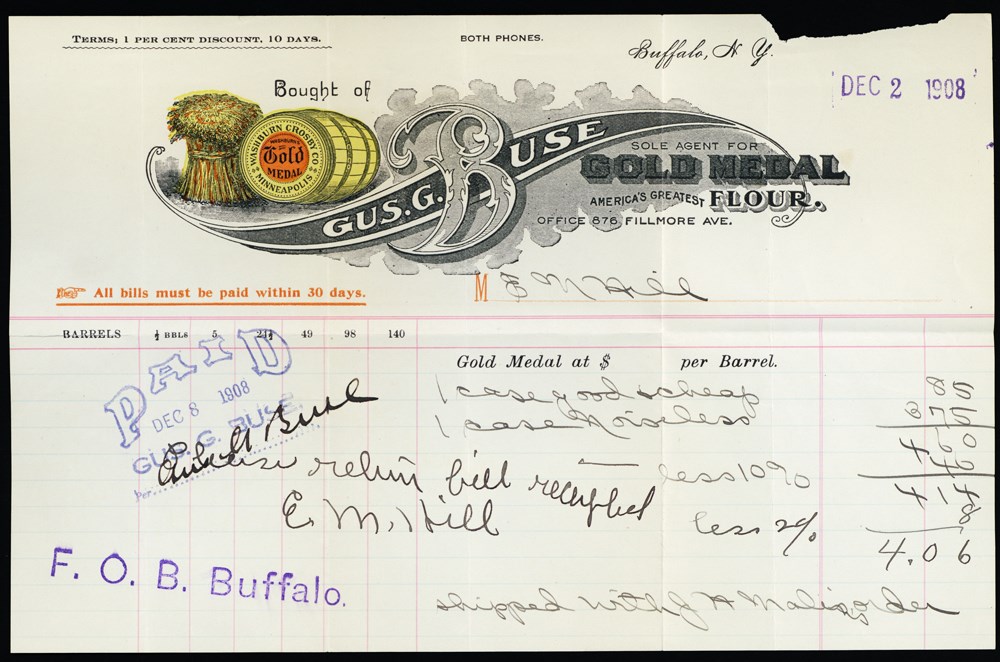 TERMS; 1 PER CENT DISCOUNT, 10 DAYS.
BOTH PHONES.
Buffalo, N. Y.
DEC 2 1908
Bought of
WASHBURN CROSBY CO.
WASHBURN'S
Gold
MEDAL
MINNEAPOLIS
GUS. G. BUSE
SOLE AGENT FOR
GOLD MEDAL
AMERICA'S GREATEST FLOUR.
OFFICE 876 FILLMORE AVE.
All bills must be paid within 30 days.
M E M Hill
BARRELS ½ BBLS 5 24½ 49 98 140
Gold Medal at $ per Barrel.
PAID
DEC 8 1908
GUS. G. BUSE.
Per
1 case good & cheap 85
1 case Noiseless 375
4 60
less 10% 46
4 14
return bill
E. M. Hill
less 2% 8
4.06
F. O. B. Buffalo.
shipped with J H order